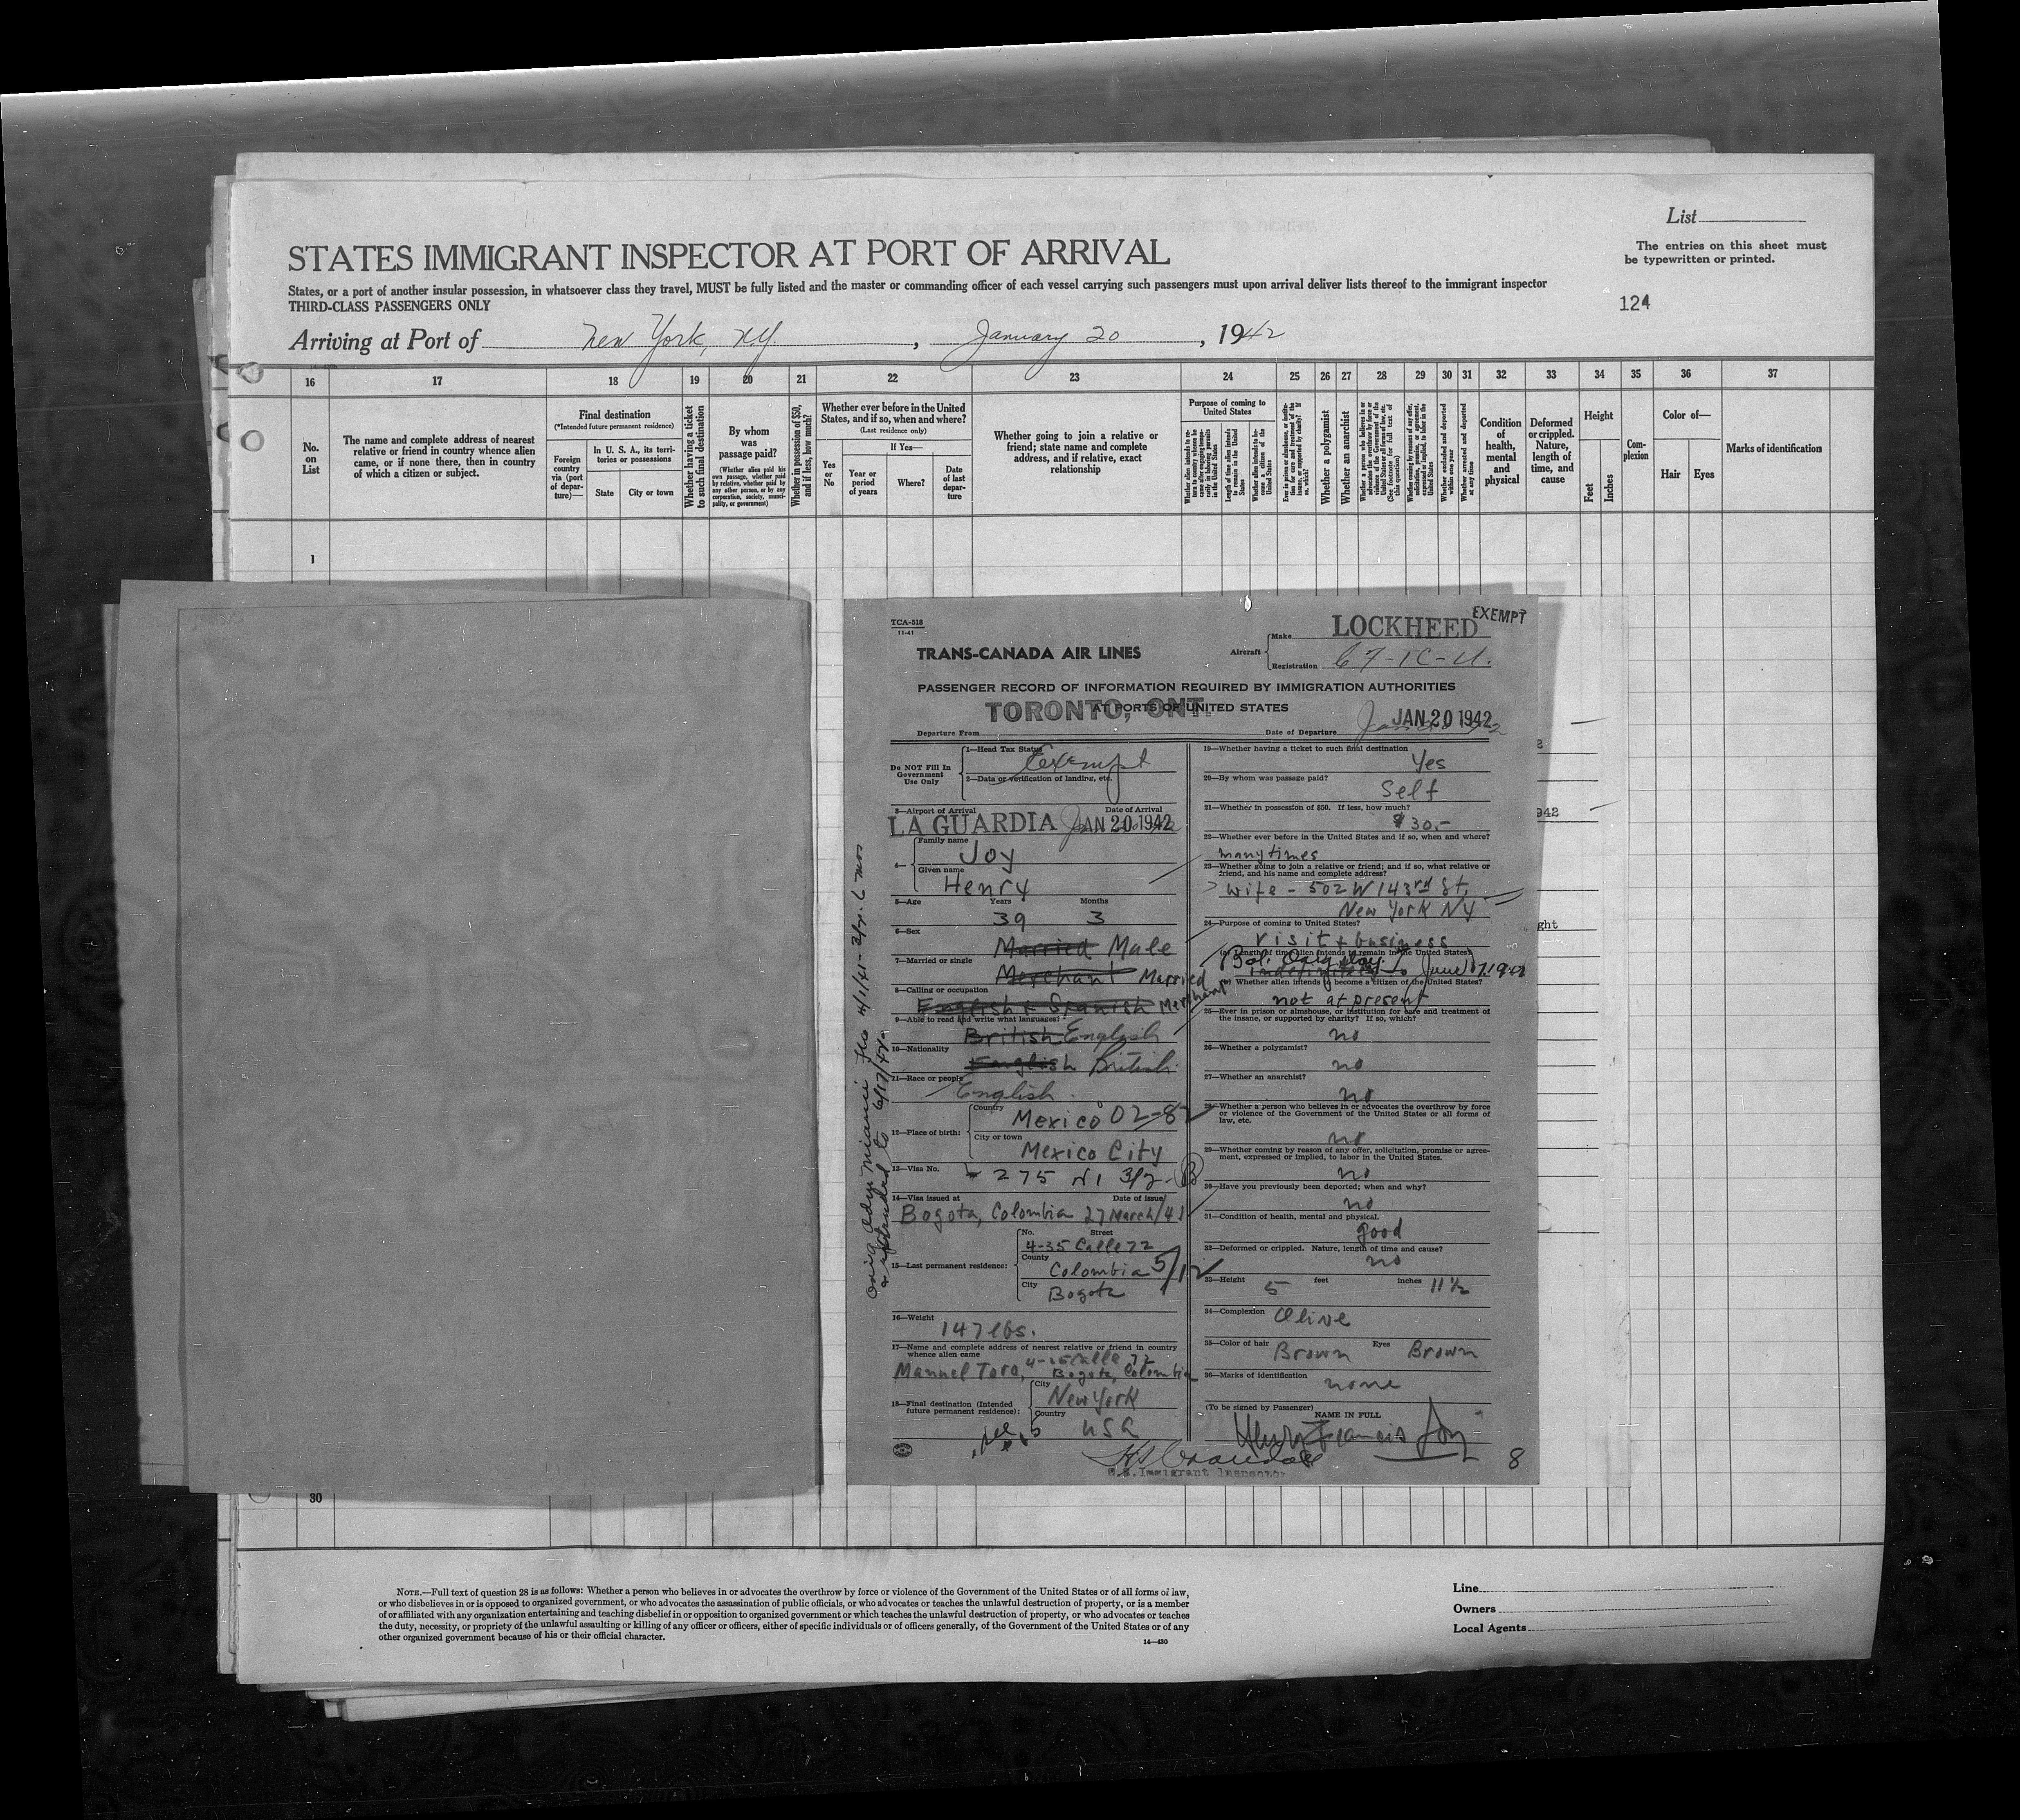 List
The entries on this sheet must
be typewritten or printed.
STATES IMMIGRANT INSPECTOR AT PORT OF ARRIVAL
States, or a port of another insular possession, in whatsoever class they travel, MUST be fully listed and the master or commanding officer of each vessel carrying such passengers must upon arrival deliver lists thereof to the immigrant inspector
THIRD-CLASS PASSENGERS ONLY
124
Arriving at Port of New York, N.Y., January 20, 1942
16 17 18 19 20 21 22 23 24 25 26 27 28 29 30 31 32 33 34 35 36 37
No. on List
The name and complete address of nearest relative or friend in country whence alien came, or if none there, then in country of which a citizen or subject.
Final destination
(*Intended future permanent residence)
Foreign country via (port of departure)—
In U. S. A., its territories or possessions
State
City or town
Whether having a ticket to such final destination
By whom was passage paid?
(Whether alien paid his own passage, whether paid by relative, whether paid by any other person, or by any corporation, society, municipality, or government)
Whether in possession of $50, and if less, how much?
Whether ever before in the United States, and if so, when and where?
(Last residence only)
Yes or No
If Yes—
Year or period of years
Where?
Date of last departure
Whether going to join a relative or friend; state name and complete address, and if relative, exact relationship
Purpose of coming to United States
Length of time alien intends to remain in the United States
Whether alien intends to become a citizen of the United States
Whether a polygamist
Whether an anarchist
(See footnote for full text of this question)
Whether excluded and deported within one year
Whether arrested and deported at any time
Condition of health, mental and physical
Deformed or crippled. Nature, length of time, and cause
Height
Feet
Inches
Complexion
Color of—
Hair
Eyes
Marks of identification
1
TCA-518
11-41
EXEMPT
TRANS-CANADA AIR LINES
Aircraft
Make LOCKHEED
Registration
PASSENGER RECORD OF INFORMATION REQUIRED BY IMMIGRATION AUTHORITIES
AT PORTS OF UNITED STATES
TORONTO, ONT.
Departure From
Date of Departure JAN 20 1942
Do NOT Fill In Government Use Only
1—Head Tax Status Exempt
2—Data or verification of landing, etc.
3—Airport of Arrival
Date of Arrival
LA GUARDIA JAN 20 1942
4—
Family name
Joy
Given name
Henry
5—Age Years Months
39 3
6—Sex
Married Male
7—Married or single
Merchant Married
8—Calling or occupation
English & Spanish Merchant
9—Able to read and write what languages?
British English
10—Nationality
English British
11—Race or people
English
12—Place of birth:
Country
Mexico 02-82
City or town
Mexico City
13—Visa No.
275
14—Visa issued at Date of issue
Bogota, Colombia 27 March/41
15—Last permanent residence:
No. Street
4-35 Calle 72
County
Colombia 5/12
City
Bogota
16—Weight
147 lbs.
17—Name and complete address of nearest relative or friend in country
whence alien came
Manuel Toro, Bogota, Colombia
18—Final destination (Intended
future permanent residence):
City
New York
Country
USA
19—Whether having a ticket to such final destination
Yes
20—By whom was passage paid?
Self
21—Whether in possession of $50. If less, how much?
$30.-
22—Whether ever before in the United States and if so, when and where?
many times
23—Whether going to join a relative or friend; and if so, what relative or
friend, and his name and complete address?
wife - 502 W 143rd St,
New York NY
24—Purpose of coming to United States?
visit & business
(a) Length of time alien intends to remain in the United States
indefinitely
(b) Whether alien intends to become a citizen of the United States?
not at present
25—Ever in prison or almshouse, or institution for care and treatment of
the insane, or supported by charity? If so, which?
no
26—Whether a polygamist?
no
27—Whether an anarchist?
no
28—Whether a person who believes in or advocates the overthrow by force
or violence of the Government of the United States or all forms of
law, etc.
no
29—Whether coming by reason of any offer, solicitation, promise or agree-
ment, expressed or implied, to labor in the United States.
no
30—Have you previously been deported; when and why?
no
31—Condition of health, mental and physical.
good
32—Deformed or crippled. Nature, length of time and cause?
no
33—Height 5 feet inches 11½
34—Complexion Olive
35—Color of hair Brown Eyes Brown
36—Marks of identification
none
(To be signed by Passenger)
NAME IN FULL
Henry Francis Joy
U.S. Immigrant Inspector
8
30
NOTE.—Full text of question 28 is as follows: Whether a person who believes in or advocates the overthrow by force or violence of the Government of the United States or of all forms of law,
or who disbelieves in or is opposed to organized government, or who advocates the assassination of public officials, or who advocates or teaches the unlawful destruction of property, or is a member
of or affiliated with any organization entertaining and teaching disbelief in or opposition to organized government or which teaches the unlawful destruction of property, or who advocates or teaches
the duty, necessity, or propriety of the unlawful assaulting or killing of any officer or officers, either of specific individuals or of officers generally, of the Government of the United States or of any
other organized government because of his or their official character.
14—430
Line
Owners
Local Agents